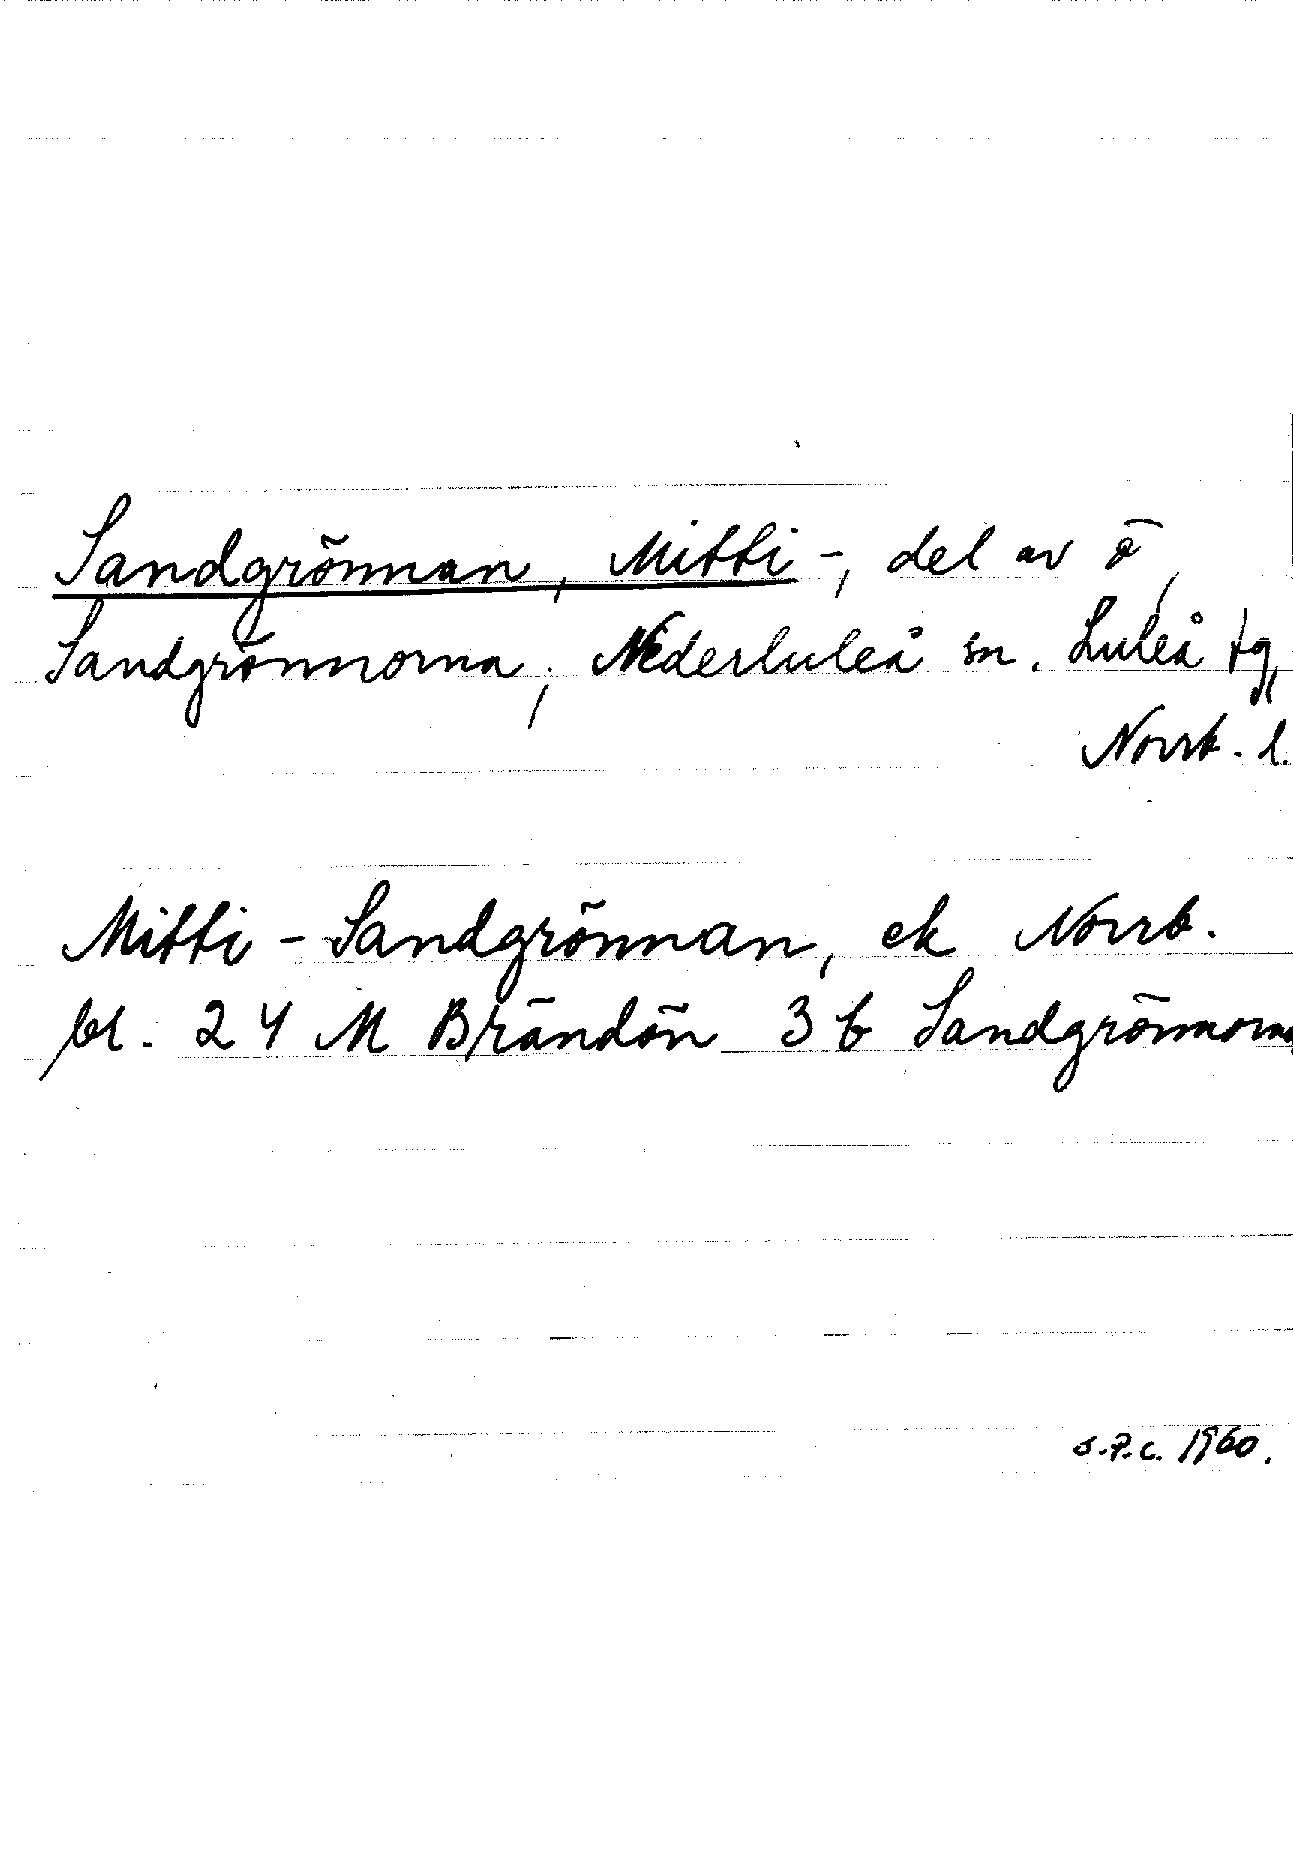 Sandgrönnan, Mitti -, del av ö,
Sandgrönnorna, Nederluleå sn. Luleå tg,
Norrb. l.
Mitti - Sandgrönnan, ek Norrb.
bl. 24 M Brändön 3 b Sandgrönnorna
O.P.C. 1960.